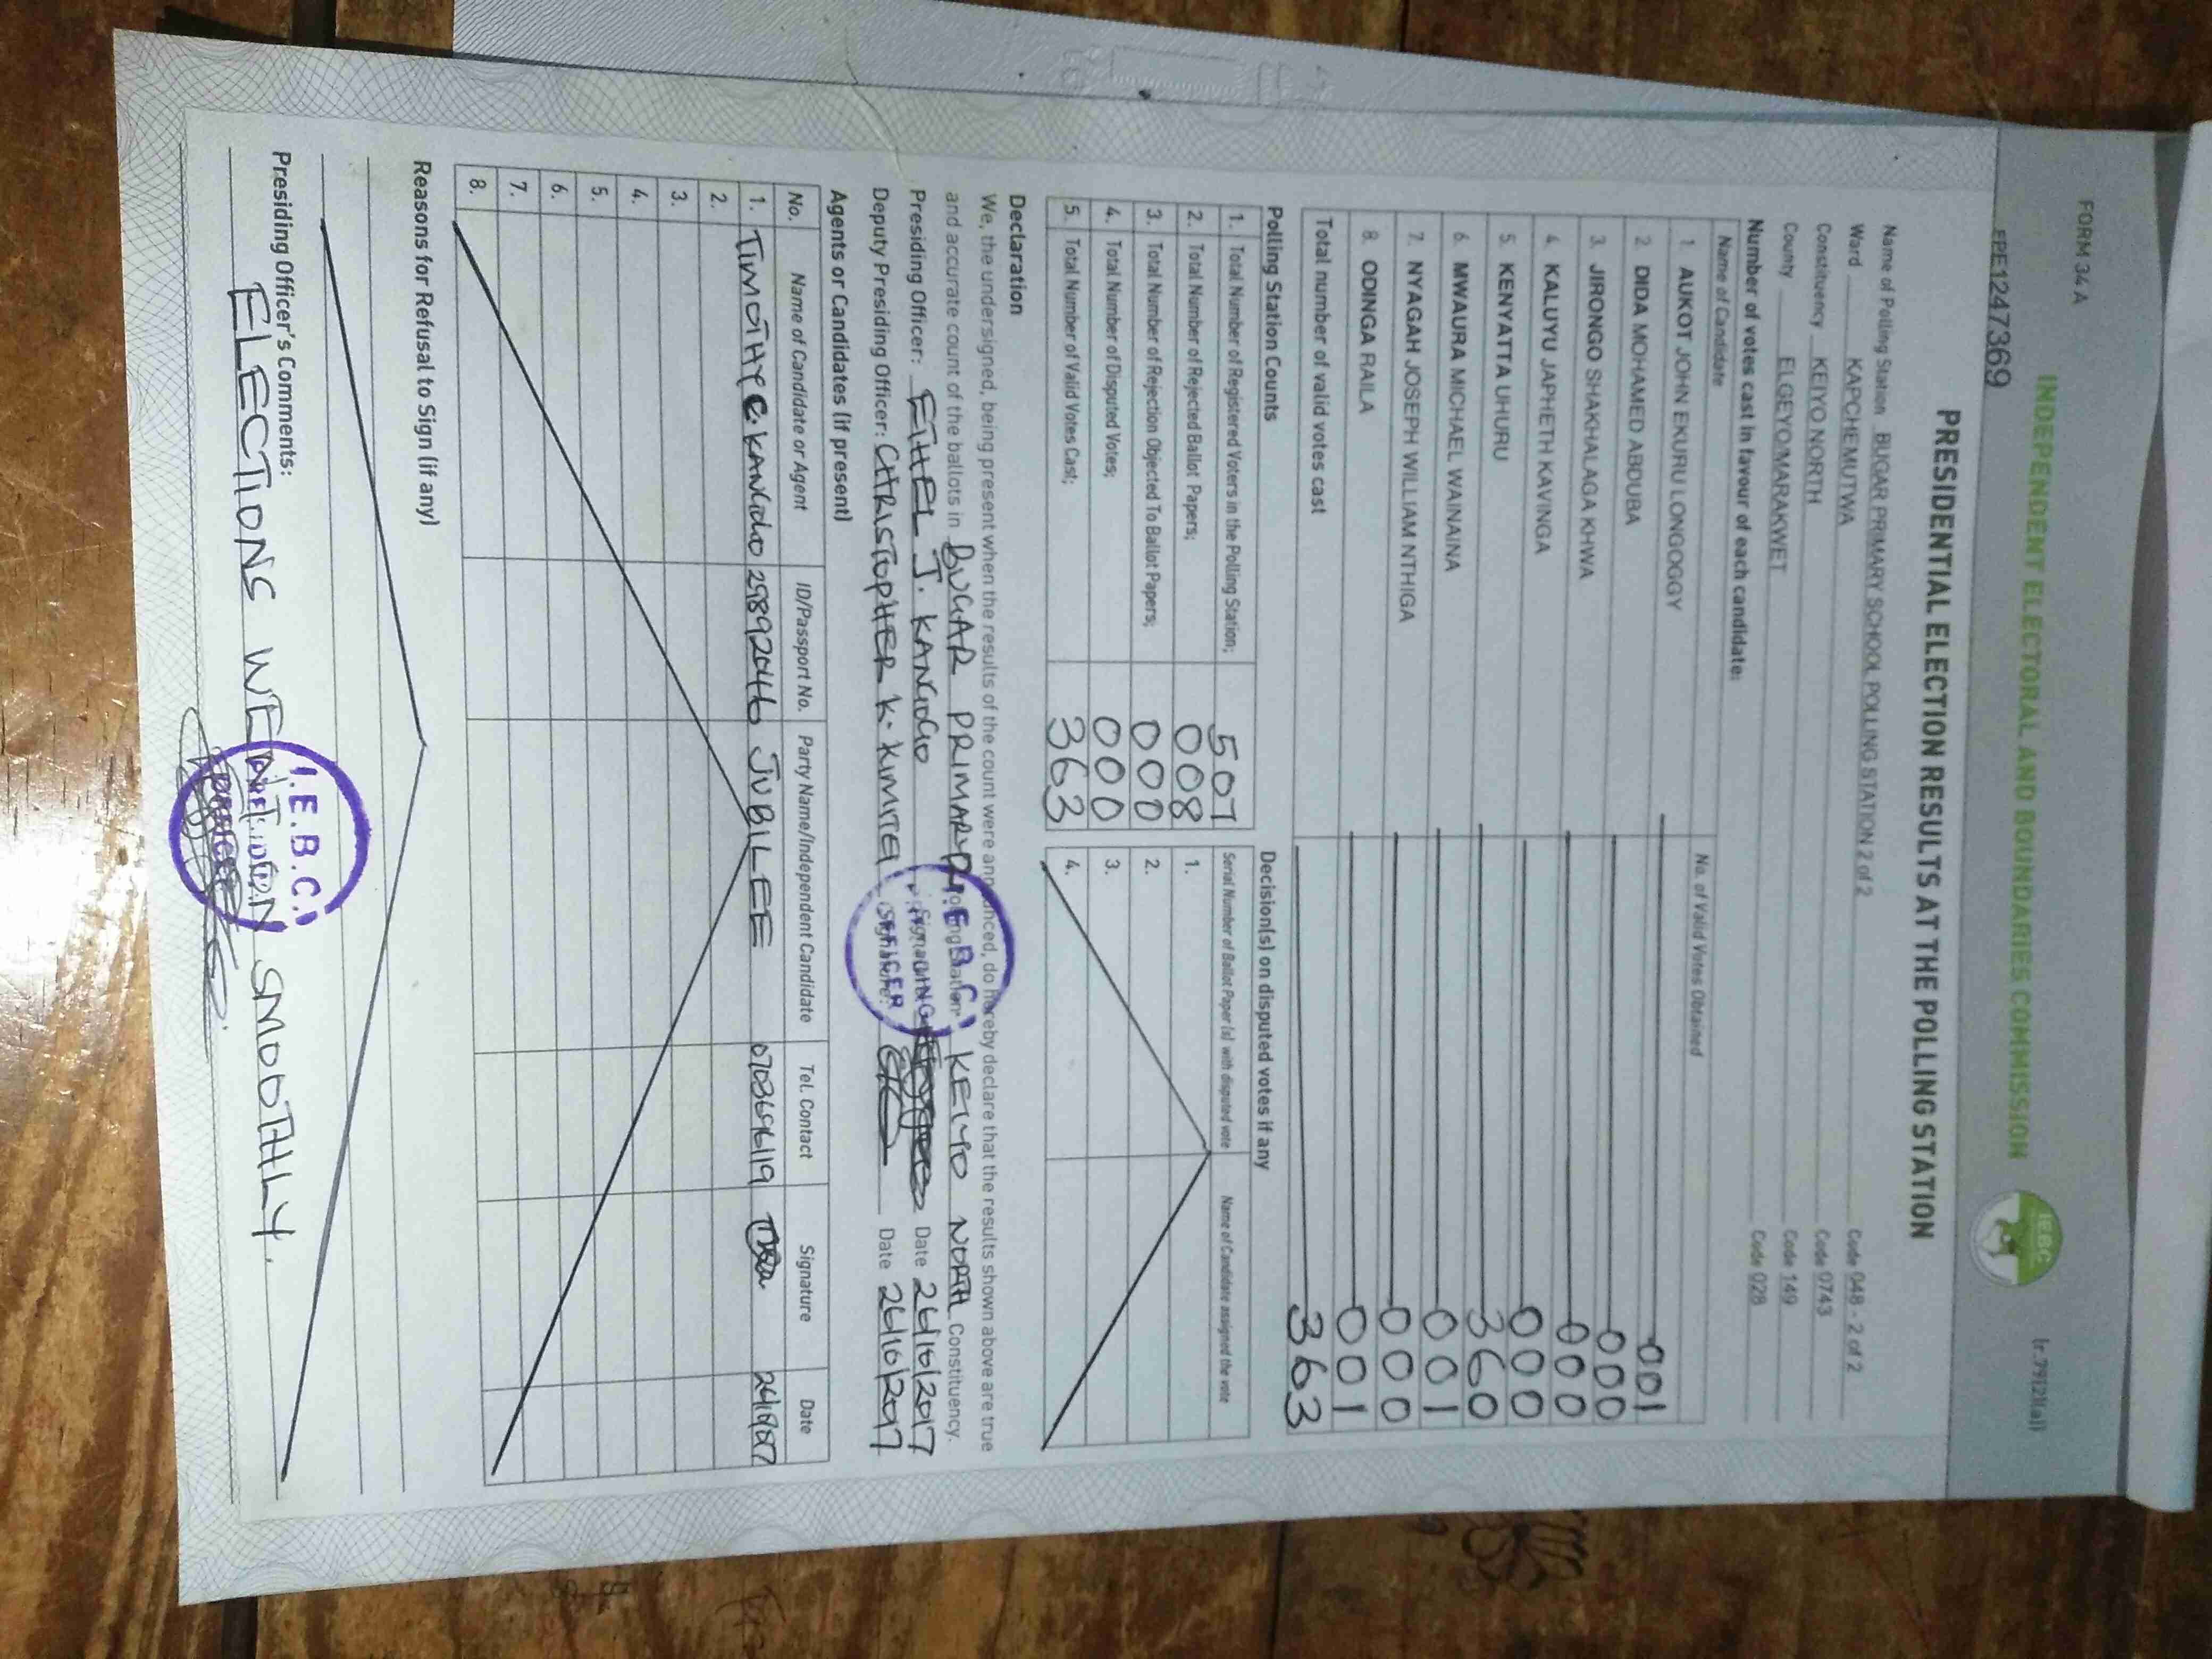 FORM 34 A
(r.79(2)(a))
INDEPENDENT ELECTORAL AND BOUNDARIES COMMISSION
IEBC
EPE1247369
PRESIDENTIAL ELECTION RESULTS AT THE POLLING STATION
Name of Polling Station BUGAR PRIMARY SCHOOL POLLING STATION 2 of 2 Code 048 - 2 of 2
Ward KAPCHEMUTWA Code 0743
Constituency KEIYO NORTH Code 149
County ELGEYO/MARAKWET Code 028
Number of votes cast in favour of each candidate:
Name of Candidate No. of Valid Votes Obtained
1. AUKOT JOHN EKURU LONGOGGY 001
2. DIDA MOHAMED ABDUBA 000
3. JIRONGO SHAKHALAGA KHWA 000
4. KALUYU JAPHETH KAVINGA 000
5. KENYATTA UHURU 360
6. MWAURA MICHAEL WAINAINA 001
7. NYAGAH JOSEPH WILLIAM NTHIGA 000
8. ODINGA RAILA 001
Total number of valid votes cast 363
Polling Station Counts
1. Total Number of Registered Voters in the Polling Station; 507
2. Total Number of Rejected Ballot Papers; 008
3. Total Number of Rejection Objected To Ballot Papers; 000
4. Total Number of Disputed Votes; 000
5. Total Number of Valid Votes Cast; 363
Decision(s) on disputed votes if any
Serial Number of Ballot Paper (s) with disputed vote Name of Candidate assigned the vote
1.
2.
3.
4.
Declaration
We, the undersigned, being present when the results of the count were announced, do hereby declare that the results shown above are true
and accurate count of the ballots in BUGAR PRIMARY Polling Station KEIYO NORTH Constituency.
Presiding Officer: ETHEL J. KANGOGO Signature: Date 26/10/2017
Deputy Presiding Officer: CHRISTOPHER K. KIMITEI Signature: Date 26/10/2017
I.E.B.C.
PRESIDING
OFFICER
Agents or Candidates (if present)
No. Name of Candidate or Agent ID/Passport No. Party Name/Independent Candidate Tel. Contact Signature Date
1. TIMOTHY C. KANGOGO 29892046 JUBILEE
2.
3.
4.
5.
6.
7.
8.
Reasons for Refusal to Sign (if any)
Presiding Officer's Comments:
ELECTIONS WENT ON SMOOTHLY.
I.E.B.C.
PRESIDING
OFFICER